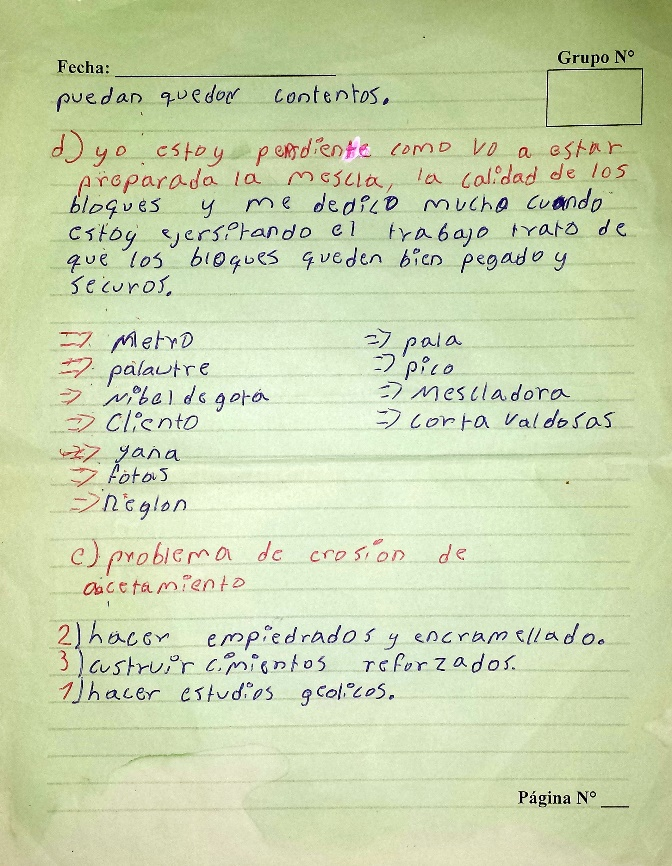 Grupo N°
Fecha:
puedan quedar contentos.
d) yo estoy pendiente como vo a estar
preparada la mescla, la calidad de los
bloques y me dedico mucho cuando
estoy ejersitando el trabajo trato de
que los bloques queden bien pegado y
securos.
=> Metro
=> palautre
=> Nibel de gota
=> Cliento
=> yana
=> fotas
=> Reglon
=> pala
=> pico
=> Mescladora
=> corta valdosas
e) problema de erosion de
ascetamiento
2) hacer empiedrados y encramellado.
3) custruir cimientos reforzados.
1) hacer estudios geolicos.
Página N°